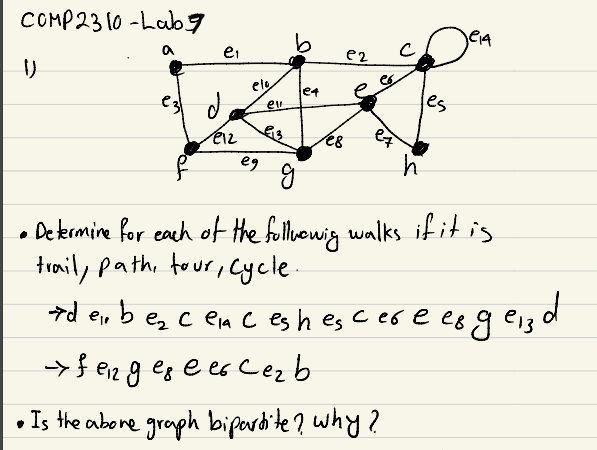 COMP2310 - Lab 9
a e1 b e2 c e14
1)
e10 e4 e e6
e3 d e11 e5
e12 e13 e8 e7
f e9 g h
• Determine for each of the folluowig walks if it is
trail, path, tour, cycle.
→ d e11 b e2 c e14 c e5 h e5 c e6 e e8 g e13 d
→ f e12 g e8 e e6 c e2 b
• Is the above graph bipartite? why?